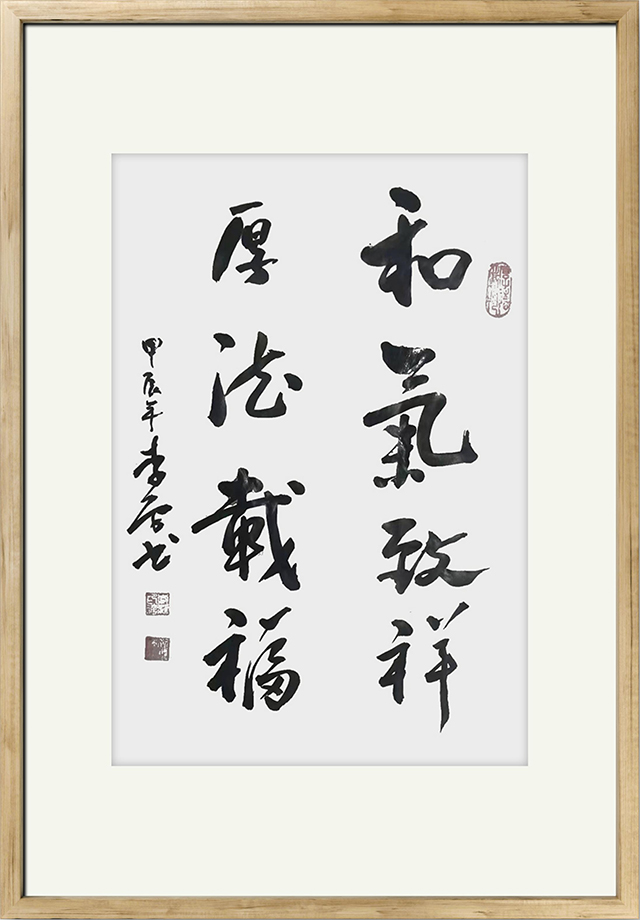 和氣致祥
厚德載福
甲辰年李居书